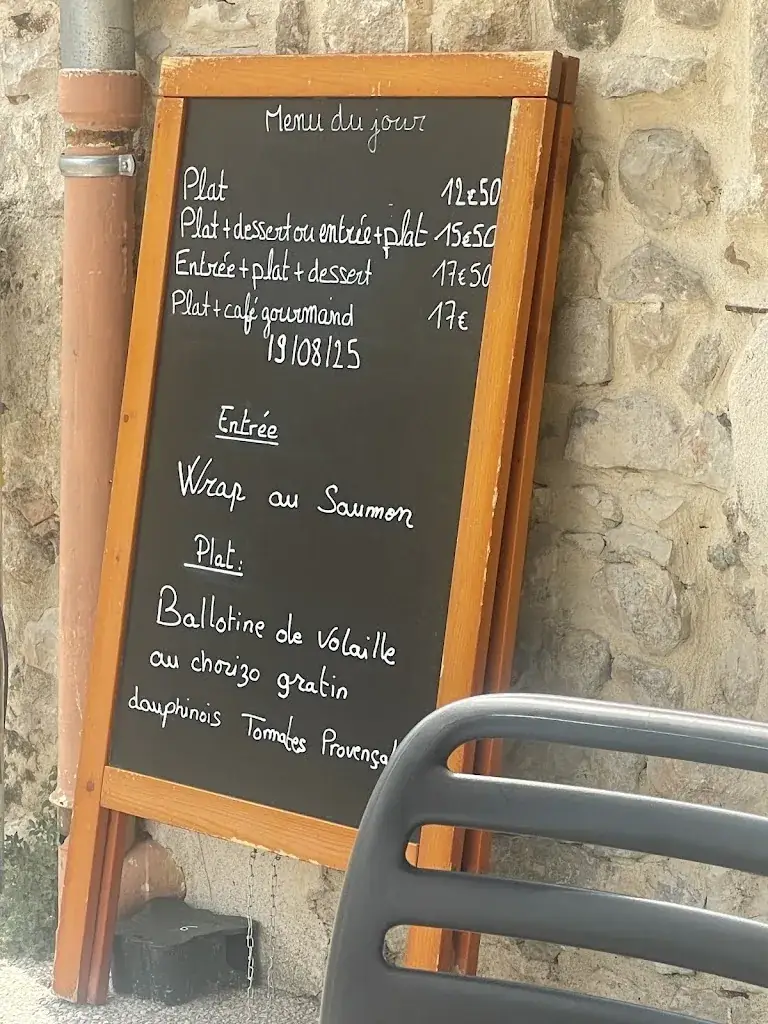 Menu du jour
Plat 12€50
Plat+dessert ou entrée+plat 15€50
Entrée+plat+dessert 17€50
Plat+café gourmand 17€
19/08/25
Entrée
Wrap au Saumon
Plat:
Ballotine de volaille
au chorizo gratin
dauphinois Tomates Provençal